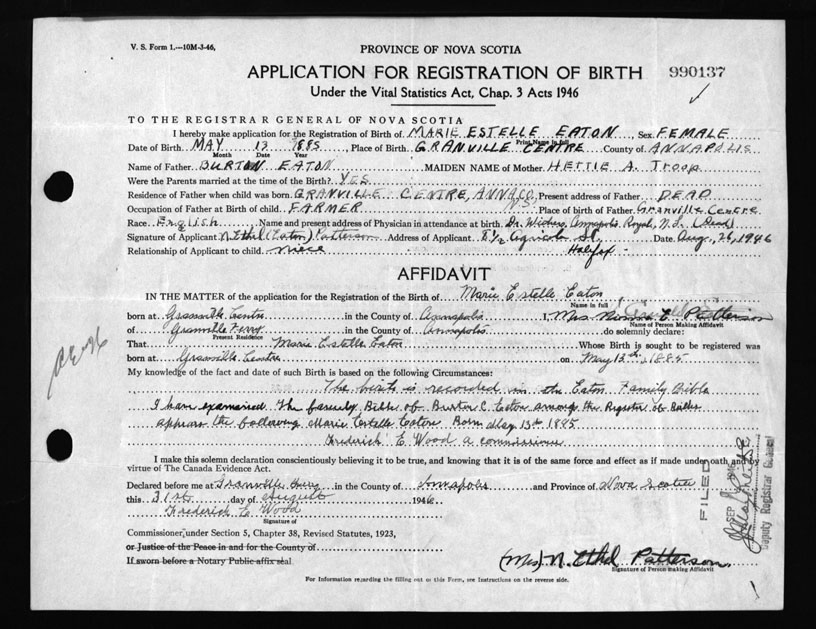 V. S. Form 1.—10M-3-46.
PROVINCE OF NOVA SCOTIA
APPLICATION FOR REGISTRATION OF BIRTH 990137
Under the Vital Statistics Act, Chap. 3 Acts 1946
TO THE REGISTRAR GENERAL OF NOVA SCOTIA
I hereby make application for the Registration of Birth of MARIE ESTELLE EATON, Sex FEMALE
Print Name in full
Date of Birth MAY 13 1885, Place of Birth GRANVILLE CENTRE County of ANNAPOLIS
Month Date Year
Name of Father BURTON EATON MAIDEN NAME of Mother HETTIE A. Troop
Were the Parents married at the time of the Birth? YES
Residence of Father when child was born GRANVILLE CENTRE, ANNA CO, N.S. Present address of Father DEAD
Occupation of Father at Birth of child FARMER Place of birth of Father Granville Centre
Race English Name and present address of Physician in attendance at birth Dr. Annapolis Royal, N.S. (Dead)
Signature of Applicant N. Ethel (Eaton) Patterson Address of Applicant 5½ Agricola St. Date Aug. 26, 1946
Relationship of Applicant to child niece Halifax
AFFIDAVIT
IN THE MATTER of the application for the Registration of the Birth of Marie Estelle Eaton
Name in full
born at Granville Centre in the County of Annapolis I, Mrs E. Patterson
Name of Person Making Affidavit
of Granville Ferry in the County of Annapolis do solemnly declare:
Present Residence
That Marie Estelle Eaton Whose Birth is sought to be registered was
born at Granville Centre on May 13th, 1885
My knowledge of the fact and date of such Birth is based on the following Circumstances:
The birth is recorded in the Eaton Family Bible
I have examined the family Bible of Burton C. Eaton among the Register of Births
appears the following Marie Estelle Eaton Born May 13th 1885
Frederick E Wood a commissioner
I make this solemn declaration conscientiously believing it to be true, and knowing that it is of the same force and effect as if made under oath and by
virtue of The Canada Evidence Act.
Declared before me at Granville Ferry in the County of Annapolis and Province of Nova Scotia
this 31st day of August 1946
Frederick E Wood
Signature of
Commissioner, under Section 5, Chapter 38, Revised Statutes, 1923,
or Justice of the Peace in and for the County of
If sworn before a Notary Public affix seal
(Mrs) N. Ethel Patterson
Signature of Person making Affidavit
For Information regarding the filling out of this Form, see Instructions on the reverse side.
FILED
SEP 1946
Deputy Registrar General